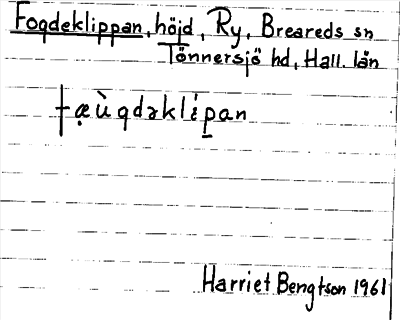 Fogdeklippan, höjd, Ry, Breareds sn
Tönnersjö hd, Hall. län
fæ̀ùgdəklípan
Harriet Bengtson 1961